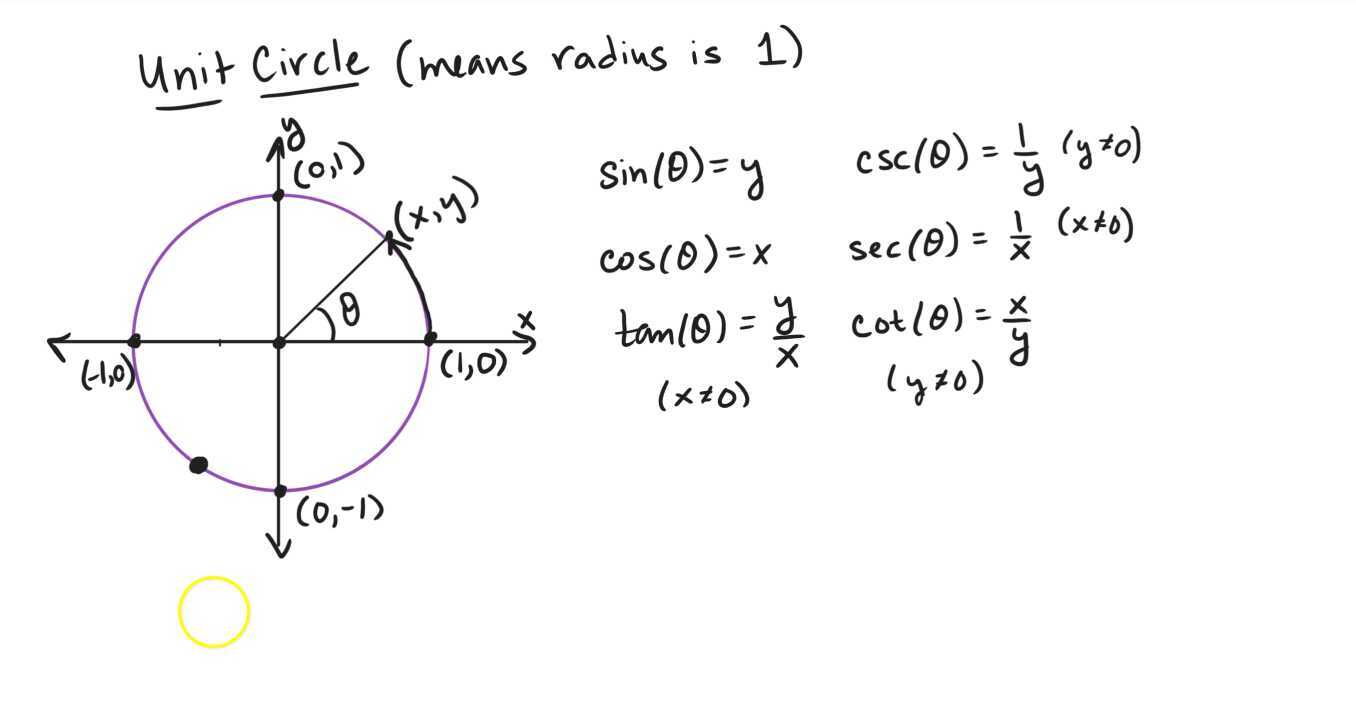 Unit Circle (means radius is 1)
y
(0,1)
(x,y)
θ
x
(-1,0)
(1,0)
(0,-1)
sin(θ)=y
csc(θ) = 1/y (y≠0)
cos(θ)=x
sec(θ) = 1/x (x≠0)
tan(θ) = y/x
(x≠0)
cot(θ) = x/y
(y≠0)